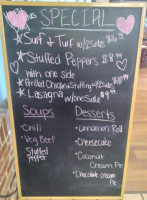 SPECIAL
* Surf & Turf w/2Sides
* Stuffed Peppers $8.99
with one side
* Grilled Chicken & Stuffing w/2Sides
* Lasagna w/one side $9.99
Soups
Desserts
• Chili
• Cinnamon Roll
• Veg Beef
• Cheesecake
• Stuffed Pepper
• Coconut Cream Pie
• Chocolate cream Pie